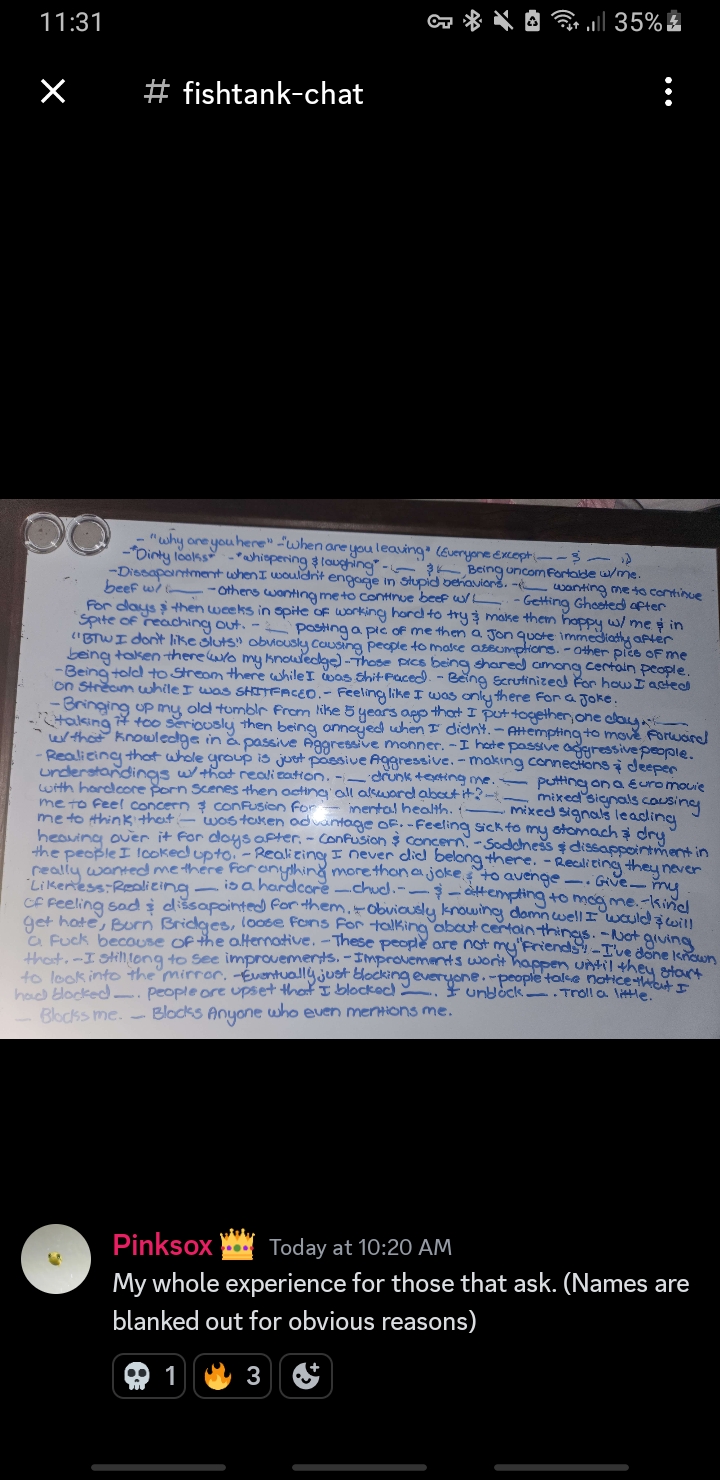 11:31
35%
# fishtank-chat
- "Why are you here" - "When are you leaving" (Everyone Except — — & — )
- "Dirty looks" - "whispering & laughing" - — & — Being uncomfortable w/me.
- Dissapointment when I wouldn't engage in stupid behaviors. - — wanting me to continue
beef w/ — - Others wanting me to continue beef w/ — - Getting Ghosted after
For days & then weeks in spite of working hard to try & make them happy w/ me & in
spite of reaching out. - — posting a pic of me then a Jon quote immediatly after
"BTW I don't like sluts" obviously causing people to make assumptions. - other pics of me
being taken there (w/o my knowledge) - Those pics being shared among certain people.
- Being told to Stream there while I was Shit Faced. - Being scrutinized for how I acted
on stream while I was SHITFACED. - Feeling like I was only there for a joke.
- Bringing up my old tumblr from like 5 years ago that I put together, one day. —
taking it too seriously then being annoyed when I didn't. - Attempting to move forward
w/ that knowledge in a passive Aggressive manner. - I hate passive aggressive people.
- Realizing that whole group is just passive Aggressive. - making connections & deeper
understandings w/ that realization. - — drunk texting me. — putting on a Euro movie
with hardcore porn scenes then acting all akward about it? - — mixed signals causing
me to feel concern & confusion for — mental health. — mixed signals leading
me to think that — was taken advantage of. - Feeling sick to my stomach & dry
heaving over it for days after. - Confusion & concern. - Saddness & dissappointment in
the people I looked up to. - Realizing I never did belong there. - Realizing they never
really wanted me there for anything more than a joke & to avenge —. Give — my
Likeness. - Realizing — is a hardcore — chud. - — & — attempting to mog me. - Kind
of feeling sad & dissapointed for them. - Obviously knowing damn well I would & will
get hate, Burn Bridges, loose fans for talking about certain things. - Not giving
a fuck because of the alternative. - These people are not my "Friends". - I've done known
that. - I still long to see improvements. - Improvements won't happen until they start
to look into the mirror. - Eventually just blocking everyone. - people take notice that I
had blocked —. People are upset that I blocked —. I unblock —. Troll a little.
— Blocks me. — Blocks Anyone who even mentions me.
Pinksox Today at 10:20 AM
My whole experience for those that ask. (Names are
blanked out for obvious reasons)
1 3